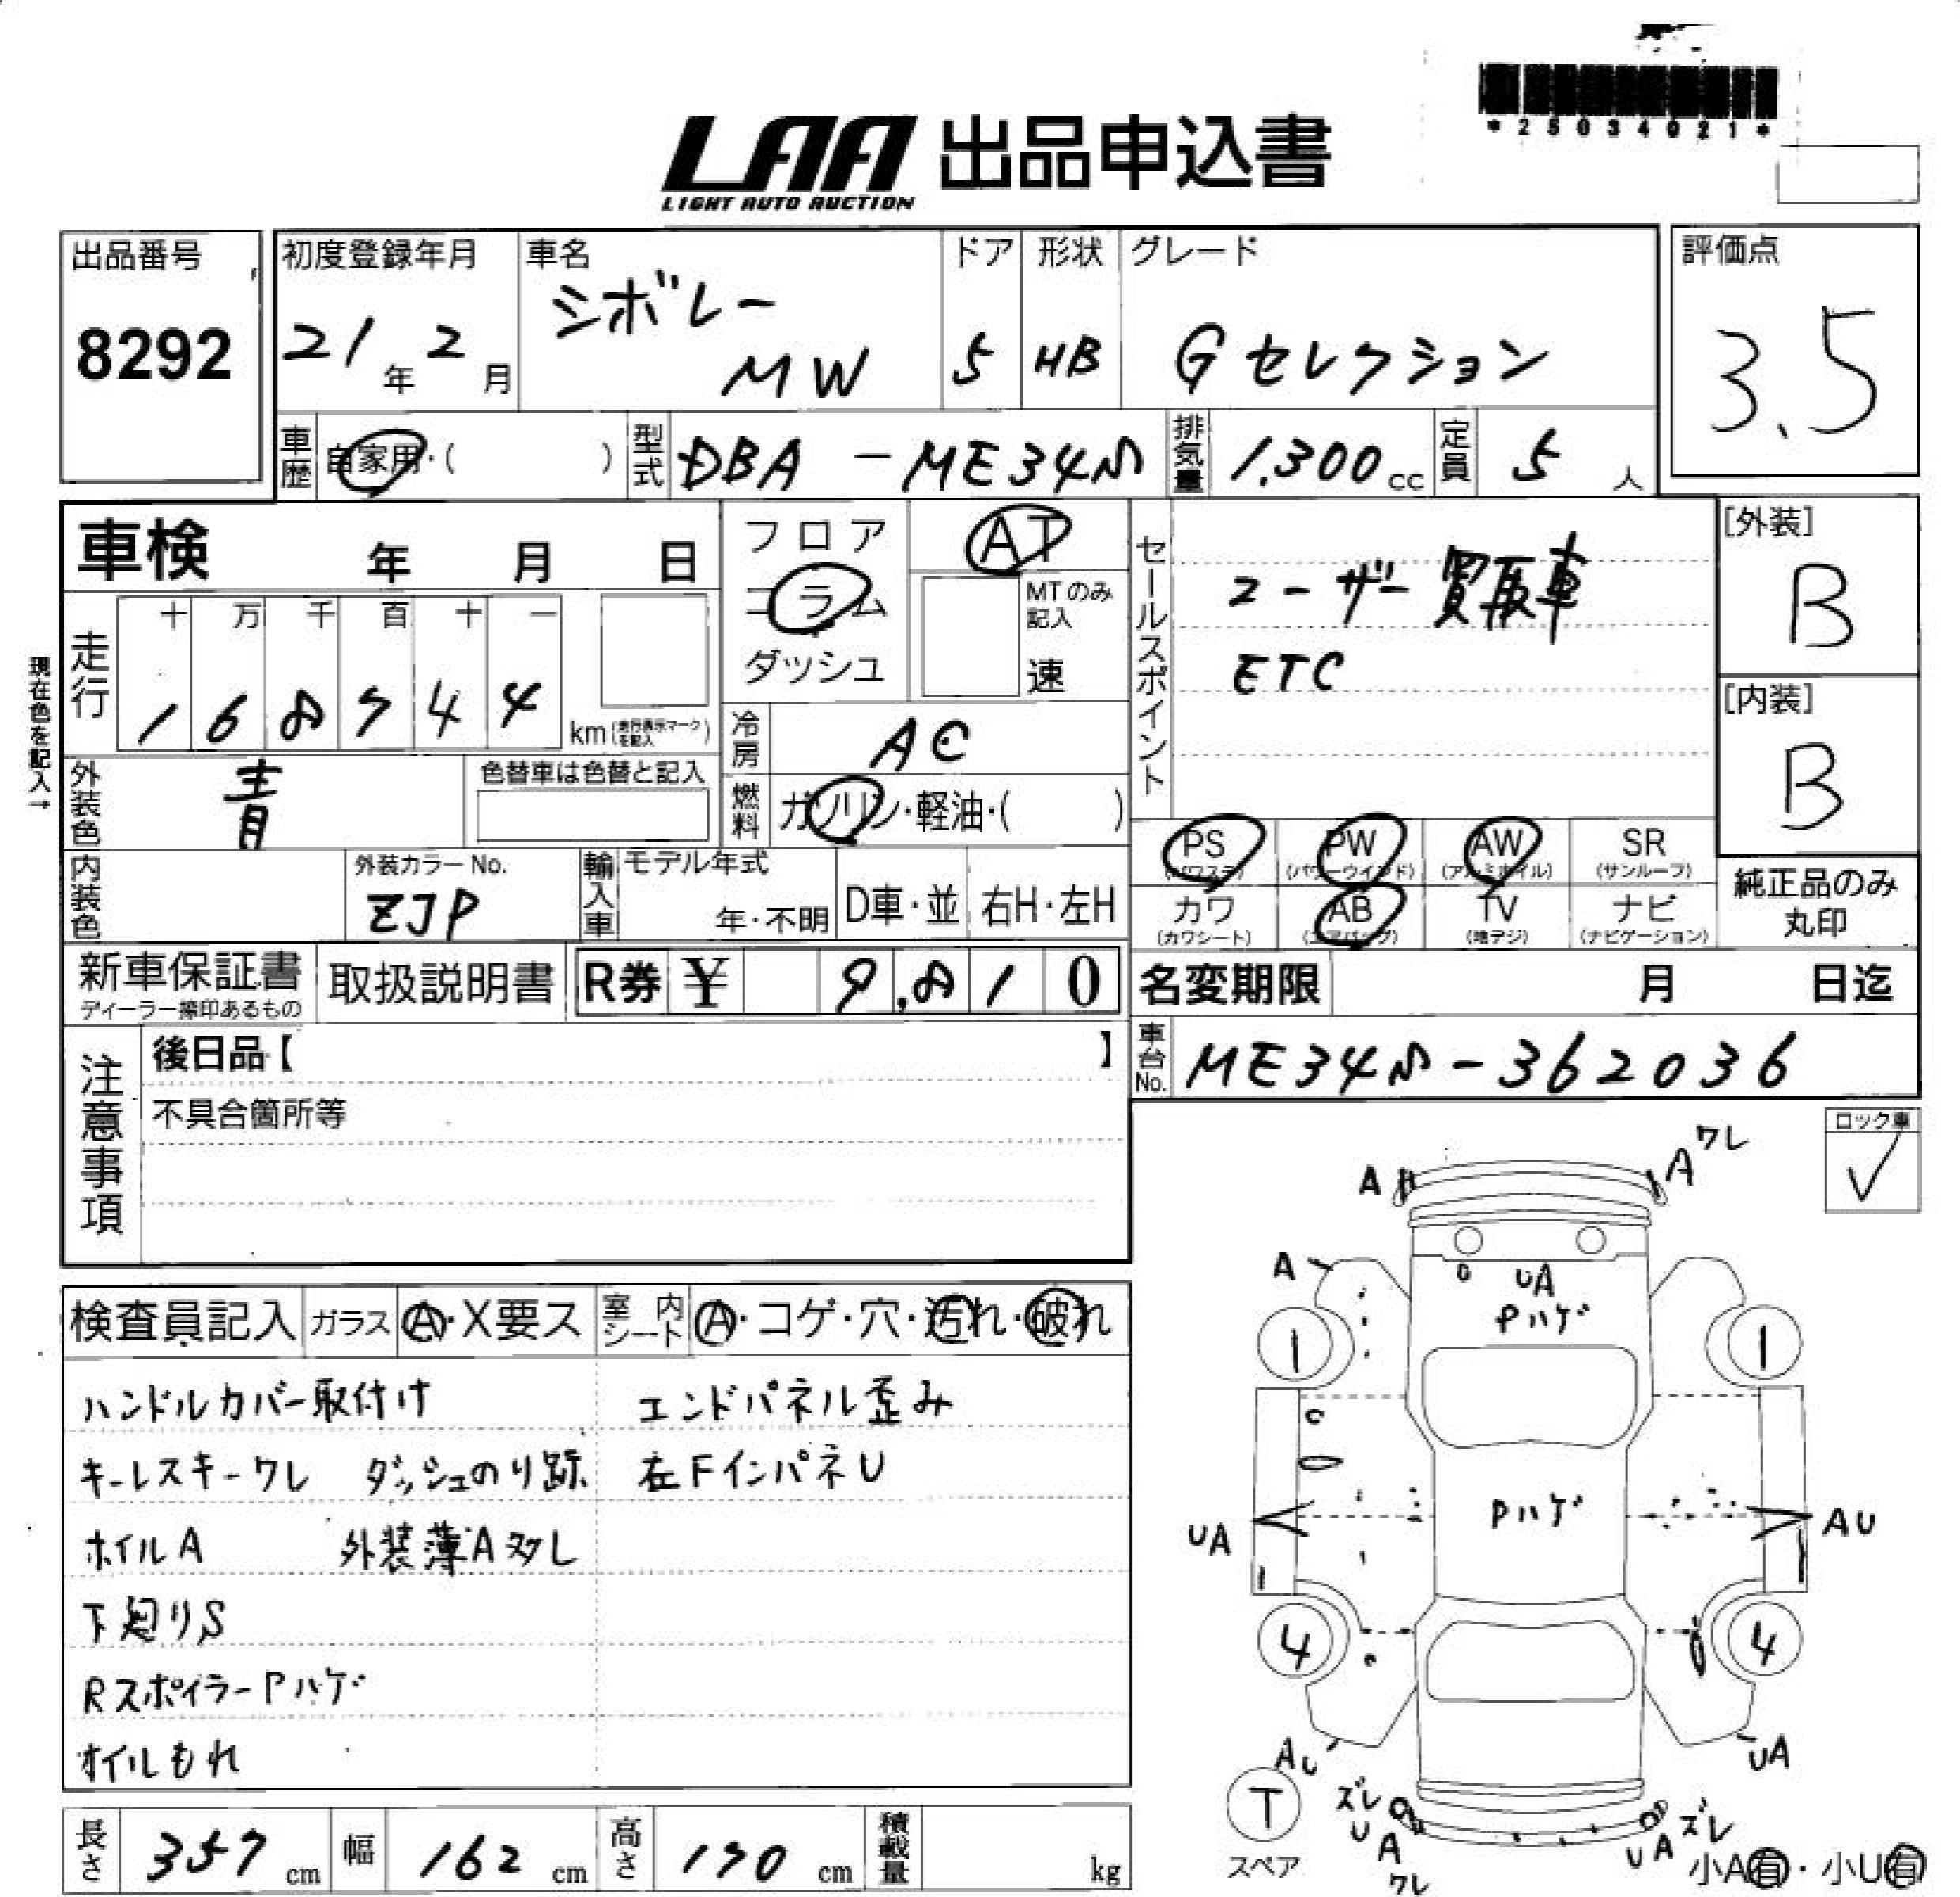 *25034021*
LAA 出品申込書
LIGHT AUTO AUCTION
出品番号
8292
初度登録年月
21年2月
車名
シボレー
MW
ドア
5
形状
HB
グレード
Gセレクション
評価点
3.5
車歴
自家用・( )
型式
DBA-ME34S
排気量
1,300cc
定員
5人
車検 年 月 日
フロア
コラム
ダッシュ
AT
MTのみ
記入
速
セールスポイント
ユーザー買取車
ETC
[外装]
B
[内装]
B
現在色を記入→
走行
十 万 千 百 十 一
1 6 8 7 4 4
km(走行表示マークを記入)
冷房
AC
外装色
青
色替車は色替と記入
燃料
ガソリン・軽油・( )
PS
(パワステ)
PW
(パワーウインド)
AW
(アルミホイル)
SR
(サンルーフ)
カワ
(カワシート)
AB
(エアバッグ)
TV
(地デジ)
ナビ
(ナビゲーション)
純正品のみ
丸印
内装色
外装カラーNo.
ZJP
輸入車
モデル年式
年・不明
D車・並
右H・左H
新車保証書
ディーラー捺印あるもの
取扱説明書
R券 ¥ 9,810
名変期限 月 日迄
車台No.
ME34S-362036
注意事項
後日品【 】
不具合箇所等
ロック車
✓
A
A ワレ
A
UA
Pハゲ
1
1
Pハゲ
UA
AU
4
4
AU
UA
T
スペア
ズレ
UA
ワレ
ズレ
UA
小A有・小U有
検査員記入
ガラス
A・X要ス
室内シート
A・コゲ・穴・汚れ・破れ
ハンドルカバー取付け
エンドパネル歪み
キーレスキーワレ ダッシュのり跡
左FインパネU
ホイルA 外装薄A多し
下廻りS
RスポイラーPハゲ
オイルもれ
長さ
357cm
幅
162cm
高さ
170cm
積載量
kg